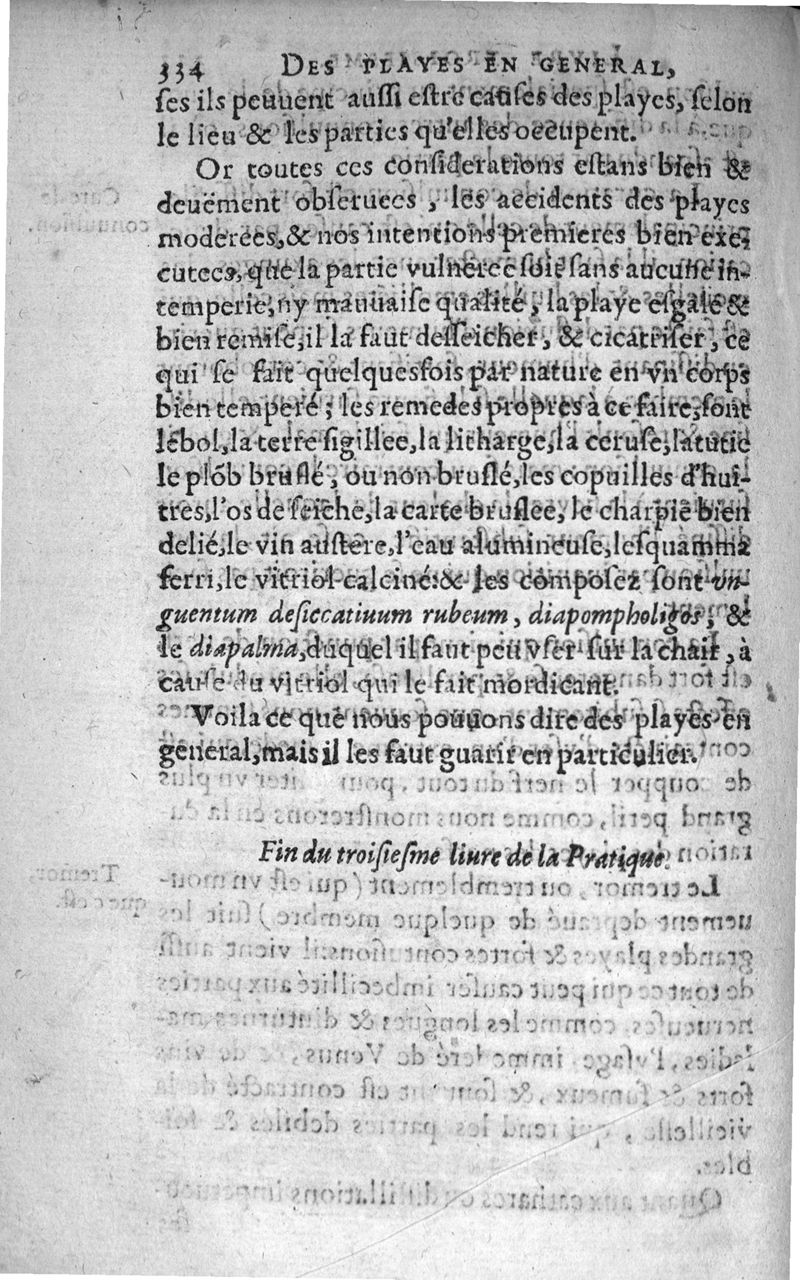 334 DES PLAYES EN GENERAL,
ſes ils peuuent auſſi eſtre cauſes des playes, ſelon
le lieu & les parties qu'elles occupent.
Or toutes ces conſiderations eſtans bien &
deuëment obſeruees, les accidents des playes
moderees, & nos intentions premieres bien exe-
cutees, que la partie vulneree ſoit ſans aucune in-
temperie, ny mauuaiſe qualité, la playe eſgale &
bien remiſe, il la faut deſſeicher, & cicatriſer, ce
qui ſe fait quelquesfois par nature en vn corps
bien temperé; les remedes propres à ce faire, ſont
lébol, la terre ſigillee, la litharge, la ceruſe, la tutie
le plõb bruſlé, ou non bruſlé, les coquilles d'hui-
tres, l'os de ſeiche, la carte bruſlee, le charpie bien
delié, le vin auſtere, l'eau alumineuſe, leſquamma
ferri, le vitriol calciné: & les compoſez ſont vn-
guentum deſiccatiuum rubeum, diapompholigos, &
le diapalma, duquel il faut peu vſer ſur la chair, à
cauſe du vitriol qui le fait mordicant.
Voila ce que nous pouuons dire des playes en
general, mais il les faut guarir en particulier.
Fin du troiſieſme liure de la Pratique.